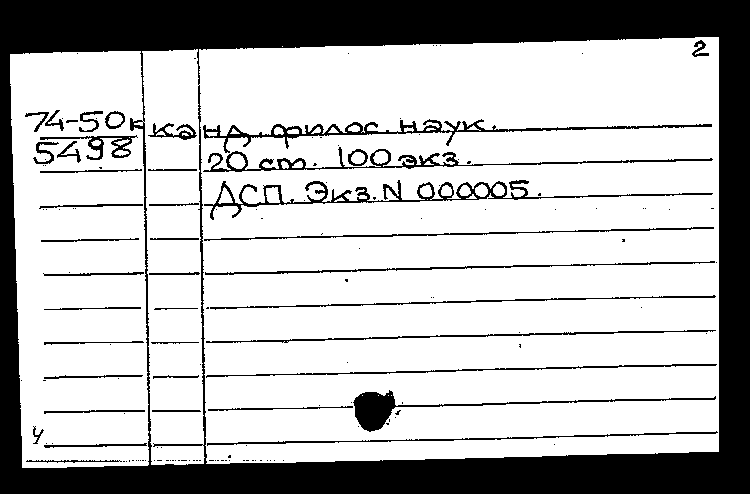 2
74-50к канд. филос. наук.
5498 20 ст. 100 экз.
ДСП. Экз. N 000005.